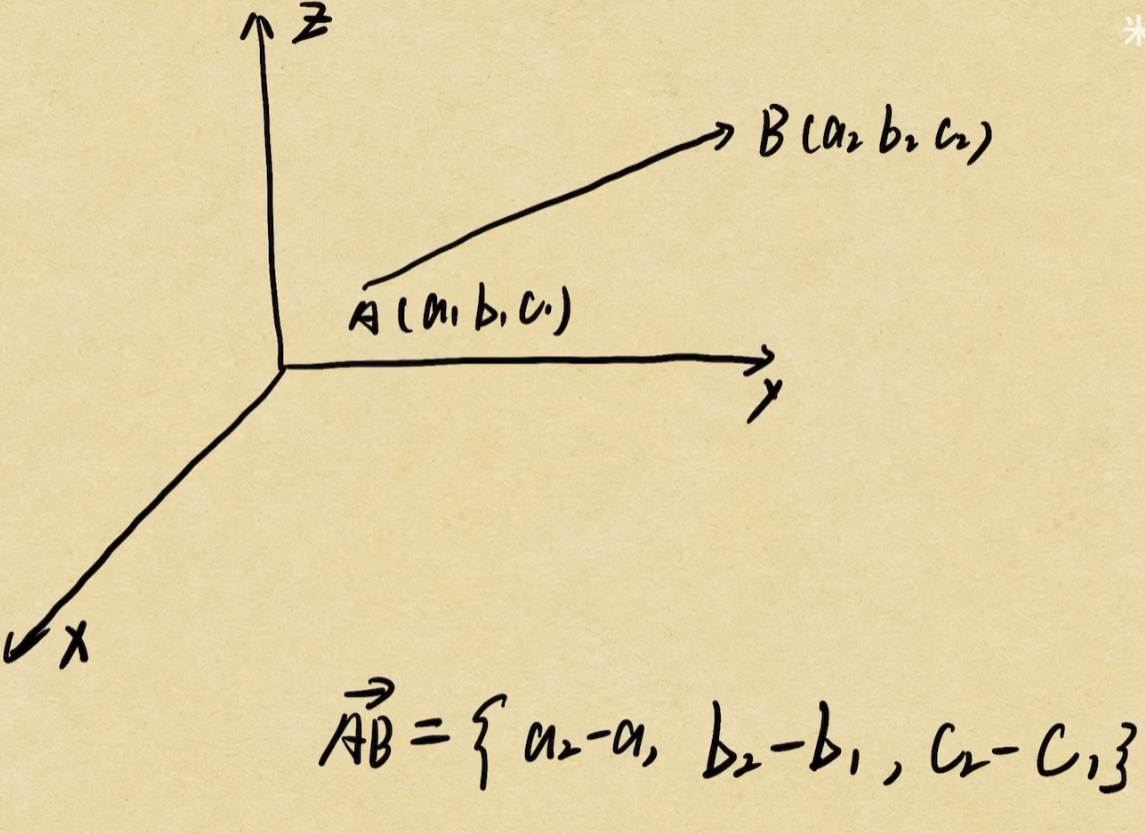 Z
B(a₂ b₂ c₂)
A(a₁ b₁ c₁)
y
x
\overrightarrow{AB} = { a₂-a₁ b₂-b₁, c₂-c₁}